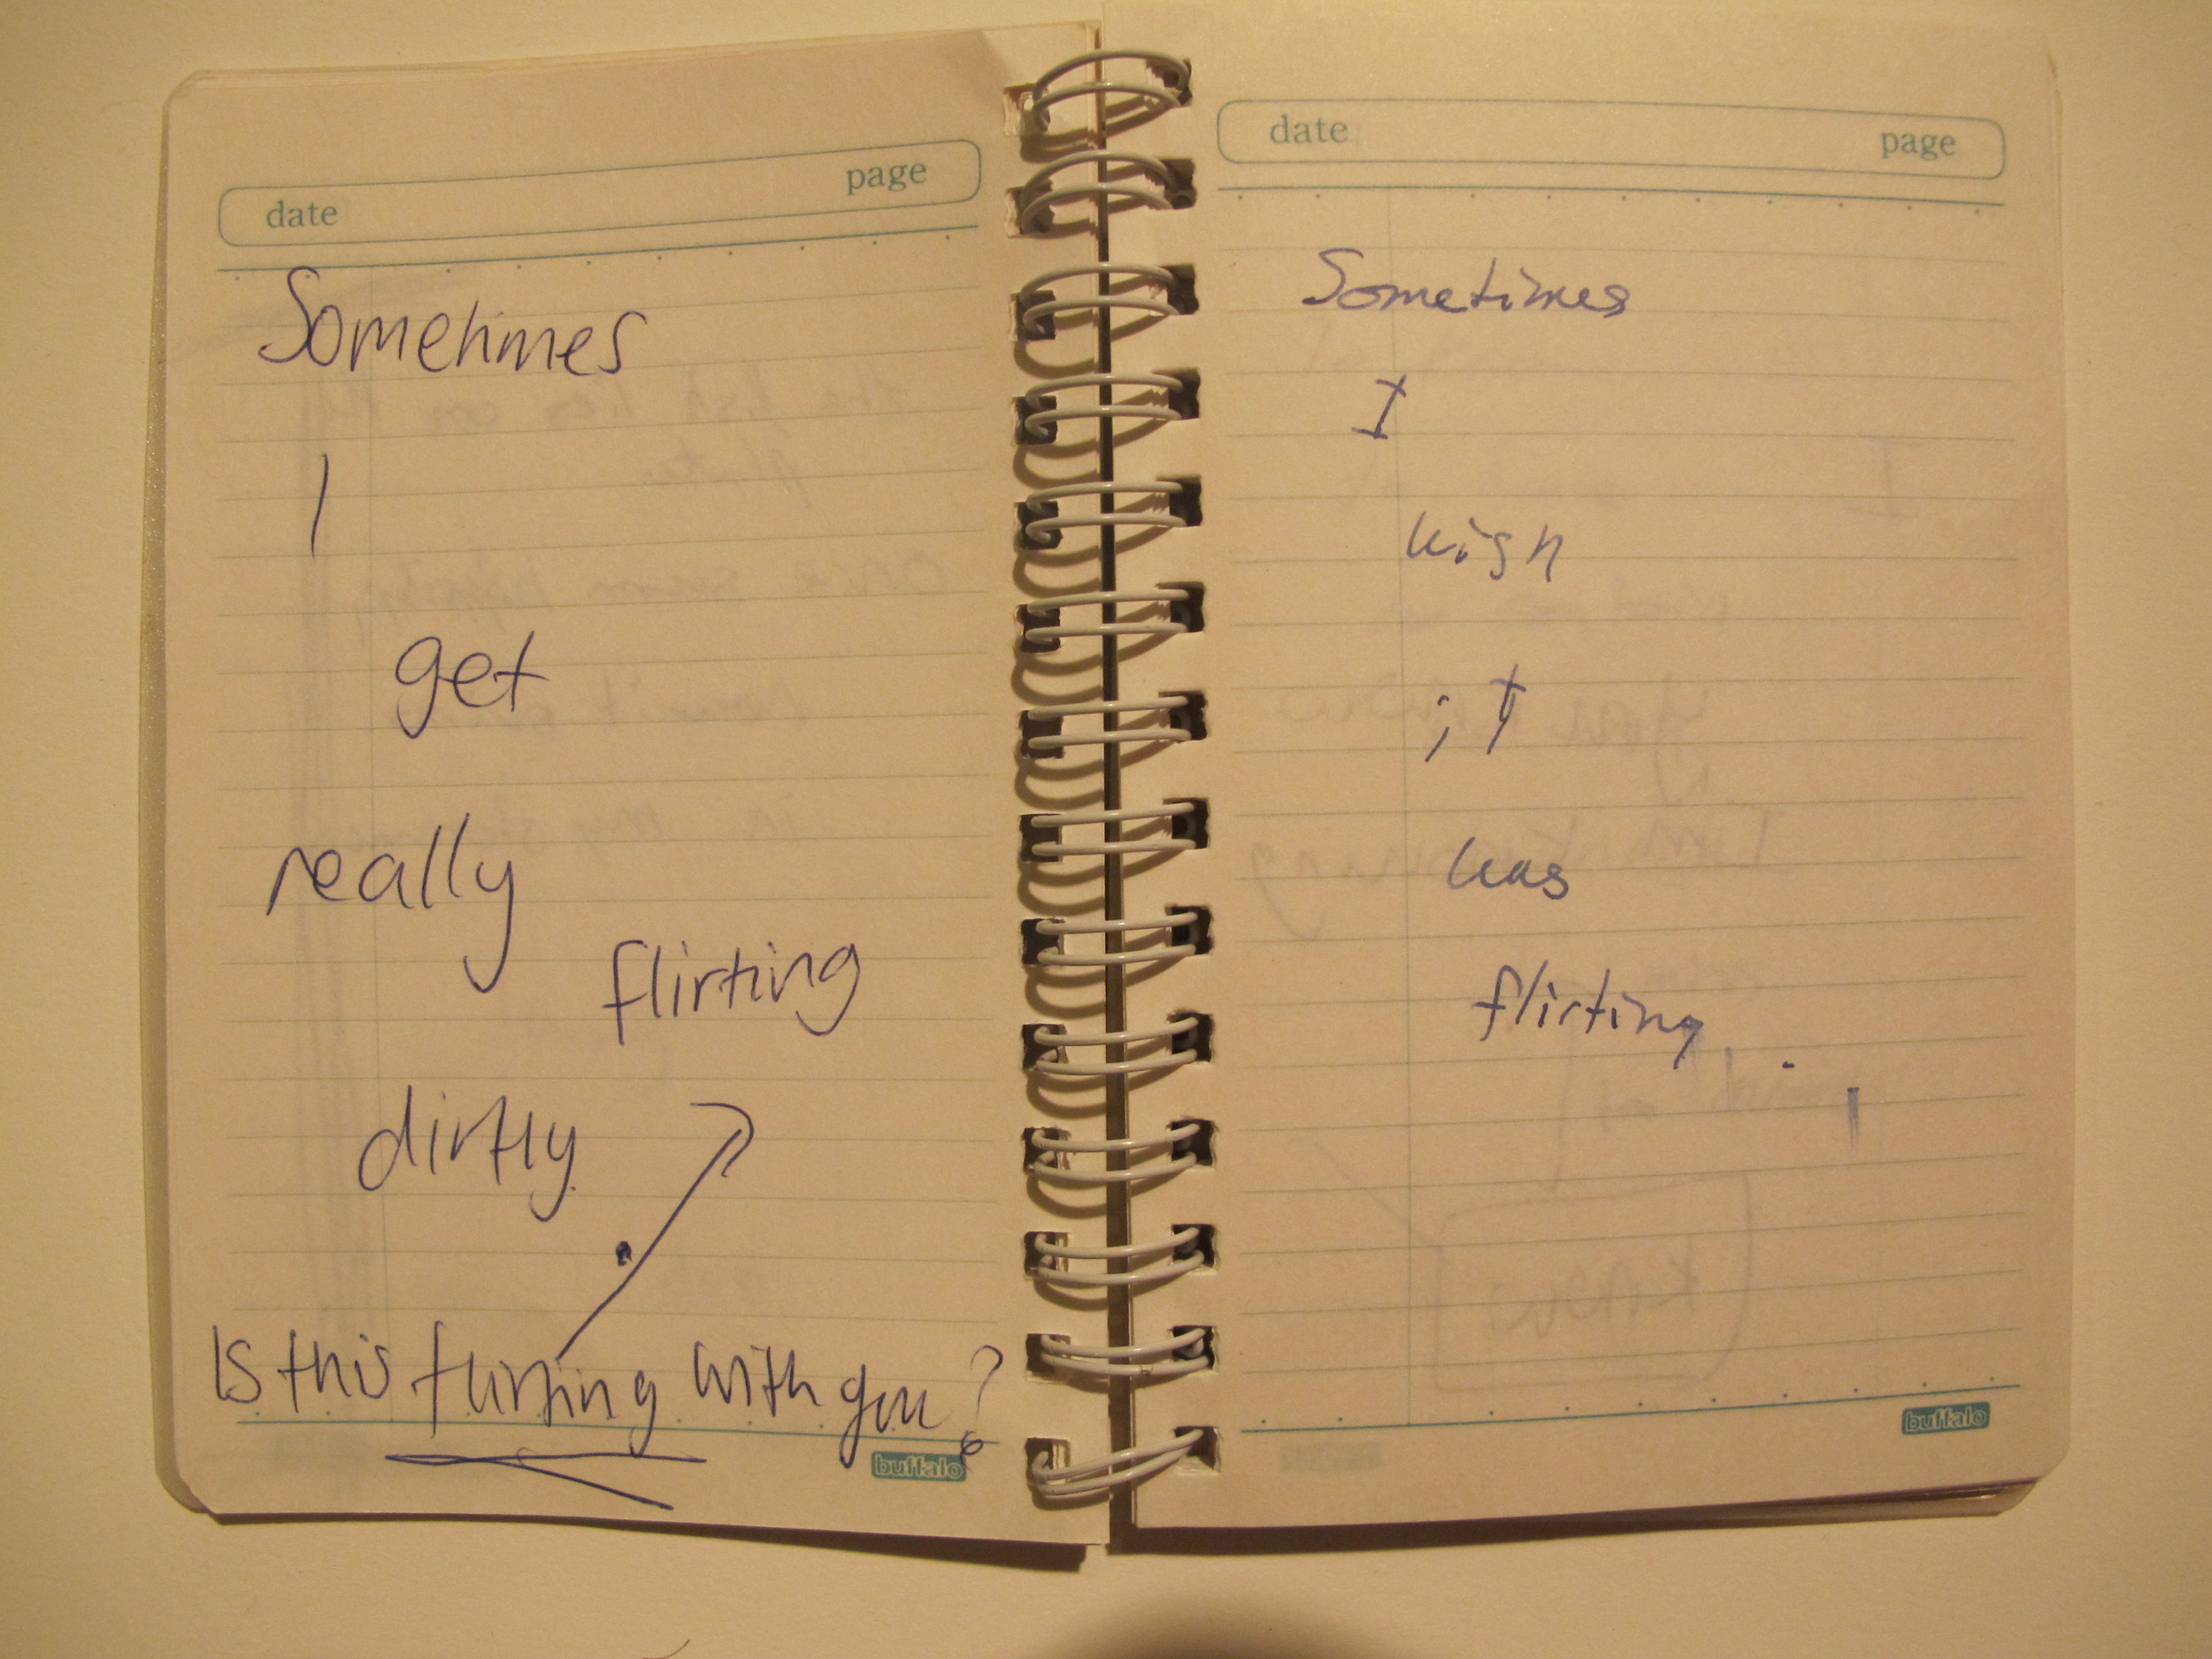 date page
Sometimes
I
get
really
flirting
dirtly.
Is this flirting with you?
buffalo
date page
Sometimes
I
wish
it
was
flirting.
buffalo